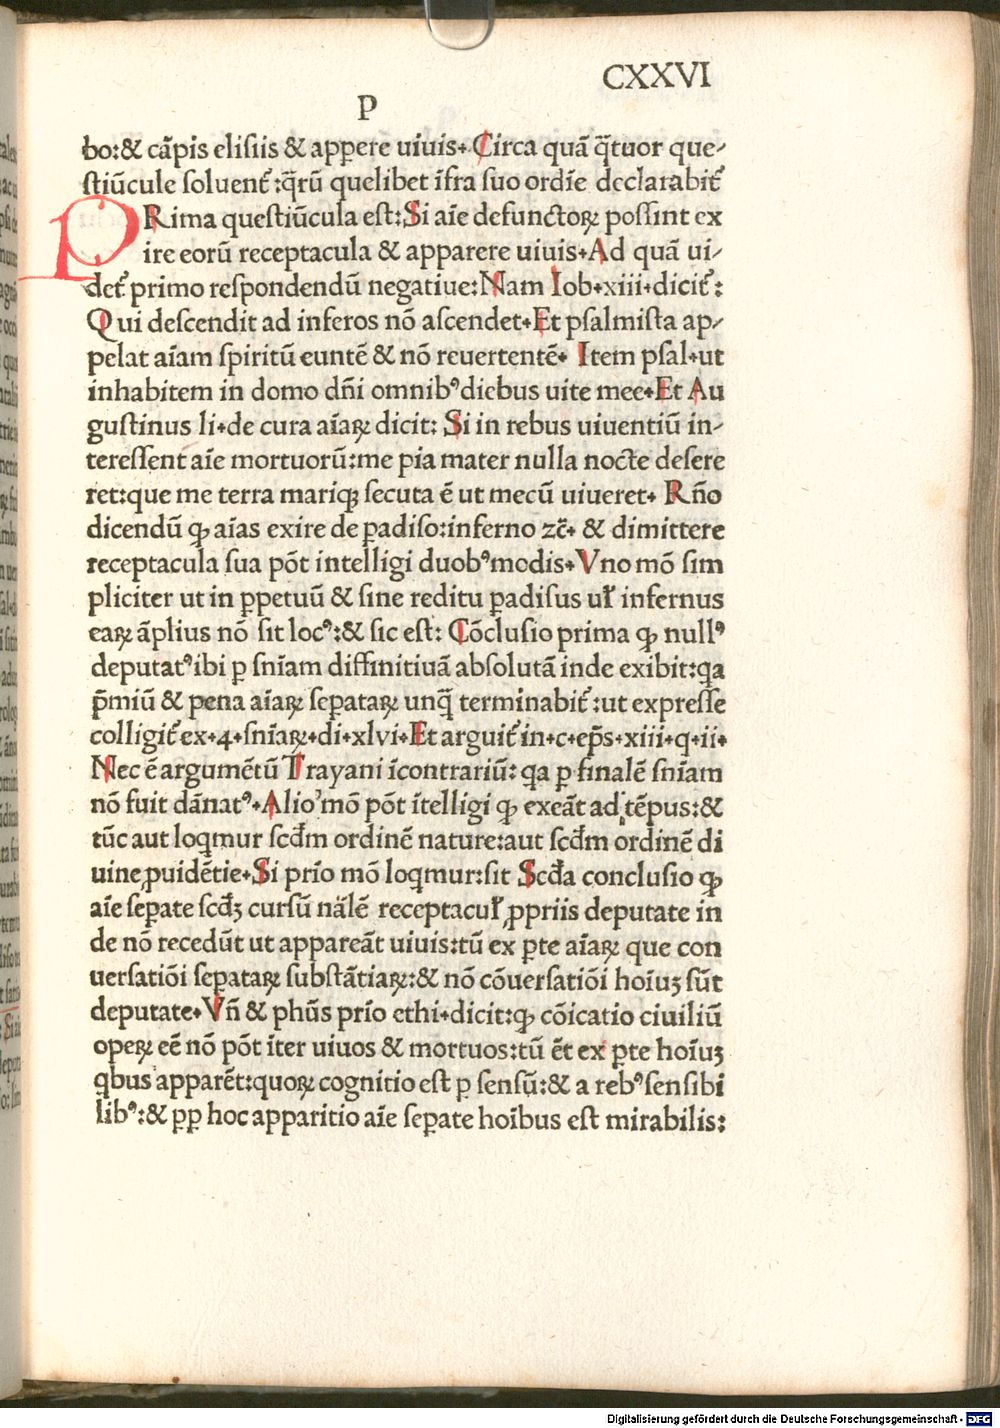 CXXVI
P
bo:& cãpis elisiis & apꝑere uiuis. Circa quã q̃tuor que-
stiũcule soluent᷑:q̃rũ quelibet ĩfra suo ordĩe declarabit᷑
PRima questiũcula est:Si aĩe defunctoꝝ possint ex
ire eorũ receptacula & apparere uiuis. Ad quã ui-
det᷑ primo respondendũ negatiue:Nam Iob.xiii.dicit᷑:
Qui descendit ad inferos nõ ascendet. Et psalmista ap-
pelat aĩam spiritũ euntẽ & nõ reuertentẽ. Item psal.ut
inhabitem in domo dñi omnibꝰ diebus uite mee. Et Au
gustinus li.de cura aĩaꝝ dicit: Si in rebus uiuentiũ in-
teressent aĩe mortuorũ:me pia mater nulla nocte desere
ret:que me terra mariqꝫ secuta ẽ ut mecũ uiueret. Rño
dicendũ ꝙ aĩas exire de ꝑadiso:inferno zc̃. & dimittere
receptacula sua põt intelligi duobꝰ modis. Vno mõ sim
pliciter ut in ꝑpetuũ & sine reditu ꝑadisus uł infernus
eaꝝ ãplius nõ sit locꝰ:& sic est: Cõclusio prima ꝙ nullꝰ
deputatꝰ ibi ꝑ sñiam diffinitiuã absolutã inde exibit:qa
p̃miũ & pena aĩaꝝ seꝑataꝝ unq̃ terminabit᷑:ut expresse
colligit᷑ ex.4.sñiaꝝ.di.xlvi. Et arguit᷑ in.c.ep̃s.xiii.q.ii.
Nec ẽ argumẽtũ Trayani ĩcontrariũ: qa ꝑ finalẽ sñiam
nõ fuit dãnatꝰ. Alio mõ põt ĩtelligi ꝙ exeãt ad tẽpus:&
tũc aut loqmur scd̃m ordinẽ nature:aut scd̃m ordinẽ di
uine ꝓuidẽtie. Si prĩo mõ loqmur:sit Scd̃a conclusio ꝙ
aĩe seꝑate scd̃ꝫ cursũ nãlẽ receptacuł ꝓpriis deputate in
de nõ recedũt ut appareãt uiuis:tũ ex ꝑte aĩaꝝ que con
uersatiõi seꝑataꝝ substãtiaꝝ:& nõ cõuersatiõi hoĩuꝫ sũt
deputate. Vñ & phũs prĩo ethi.dicit:ꝙ cõicatio ciuiliũ
opeꝝ eẽ nõ põt ĩter uiuos & mortuos:tũ ẽt ex ꝑte hoĩuꝫ
qbus apparẽt:quoꝝ cognitio est ꝑ sensũ:& a rebꝰ sensibi
libꝰ:& ꝓꝑ hoc apparitio aĩe seꝑate hoĩbus est mirabilis:
Digitalisierung gefördert durch die Deutsche Forschungsgemeinschaft - DFG